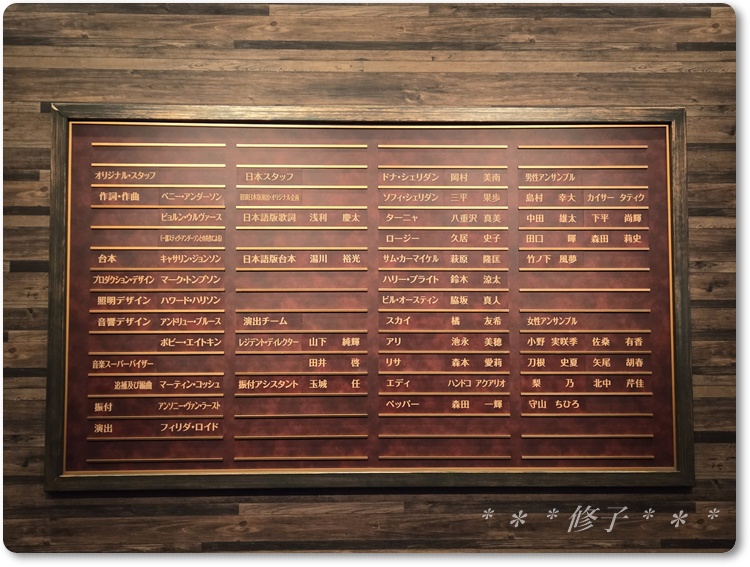 オリジナル・スタッフ
作詞・作曲 ベニー・アンダーソン
ビョルン・ウルヴァース
(一部スティグ・アンダーソンとの共作による)
台本 キャサリン・ジョンソン
プロダクション・デザイン マーク・トンプソン
照明デザイン ハワード・ハリソン
音響デザイン アンドリュー・ブルース
ボビー・エイトキン
音楽スーパーバイザー
追補及び編曲 マーティン・コッシュ
振付 アンソニー・ヴァン・ラースト
演出 フィリダ・ロイド
日本スタッフ
日本語版歌詞 浅利 慶太
日本語版台本 湯川 裕光
演出チーム
レジデント・ディレクター 山下 純輝
田井 啓
振付アシスタント 玉城 任
ドナ・シェリダン 岡村 美南
ソフィ・シェリダン 三平 果歩
ターニャ 八重沢 真美
ロージー 久居 史子
サム・カーマイケル 萩原 隆匡
ハリー・ブライト 鈴木 涼太
ビル・オースティン 脇坂 真人
スカイ 橘 友希
アリ 池永 美穂
リサ 森本 愛莉
エディ ハンドコ アクアリオ
ペッパー 森田 一輝
男性アンサンブル
島村 幸大 カイサー タティク
中田 雄太 下平 尚輝
田口 暉 森田 莉史
竹ノ下 風夢
女性アンサンブル
小野 実咲季 佐桑 有香
刀根 史夏 矢尾 胡春
梨 乃 北中 芹佳
守山 ちひろ
* * * 修子 * * *